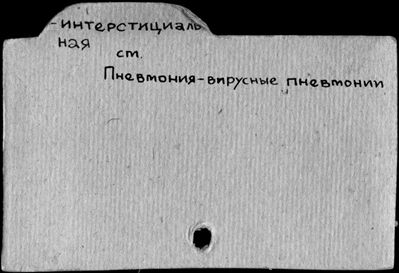 -интерстициаль
ная
ст.
Пневмония-вирусные пневмонии